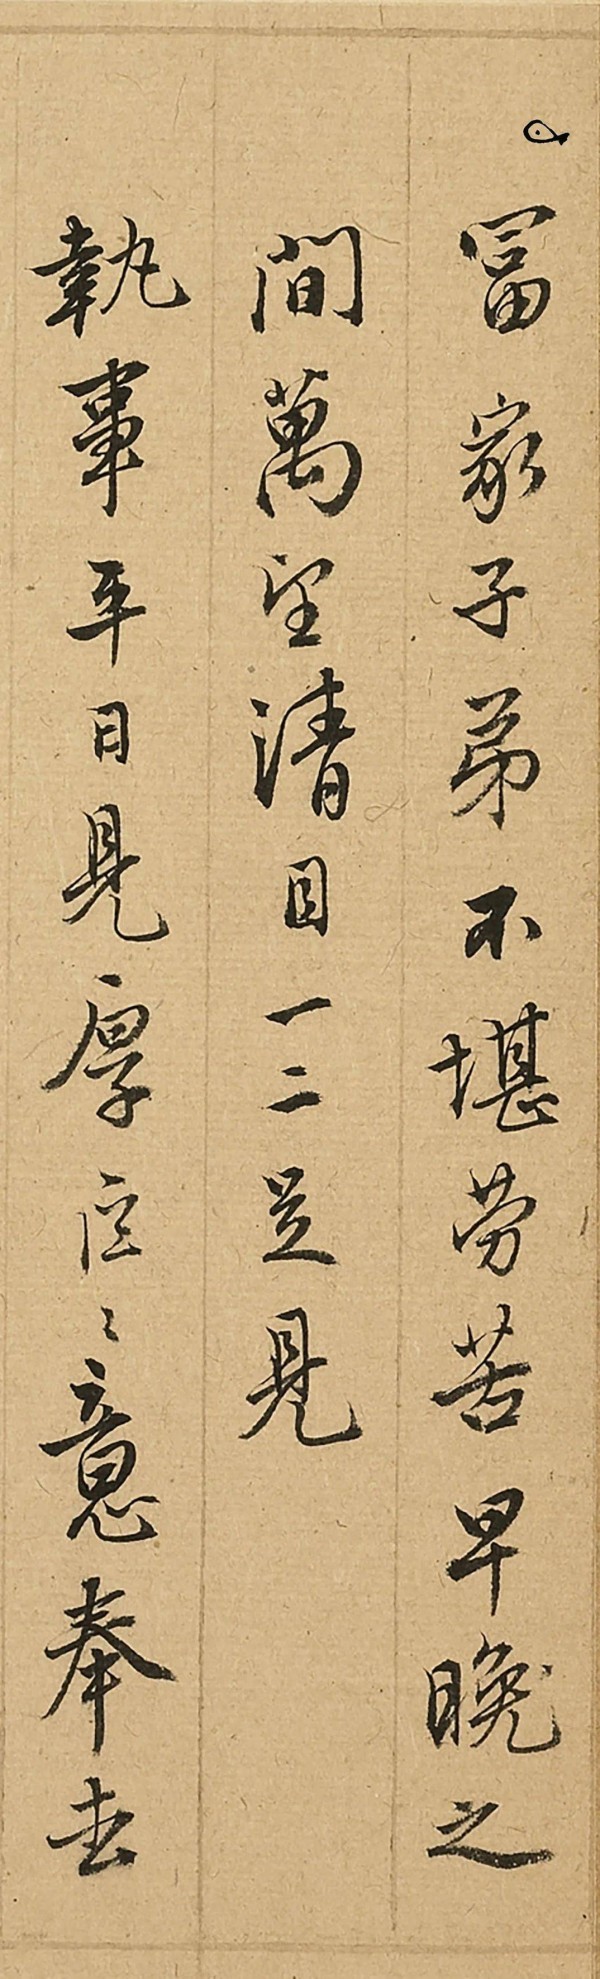 冨家子弟不堪劳苦早晚之
間萬望清目一二足見
執事平日見厚区〻意奉去